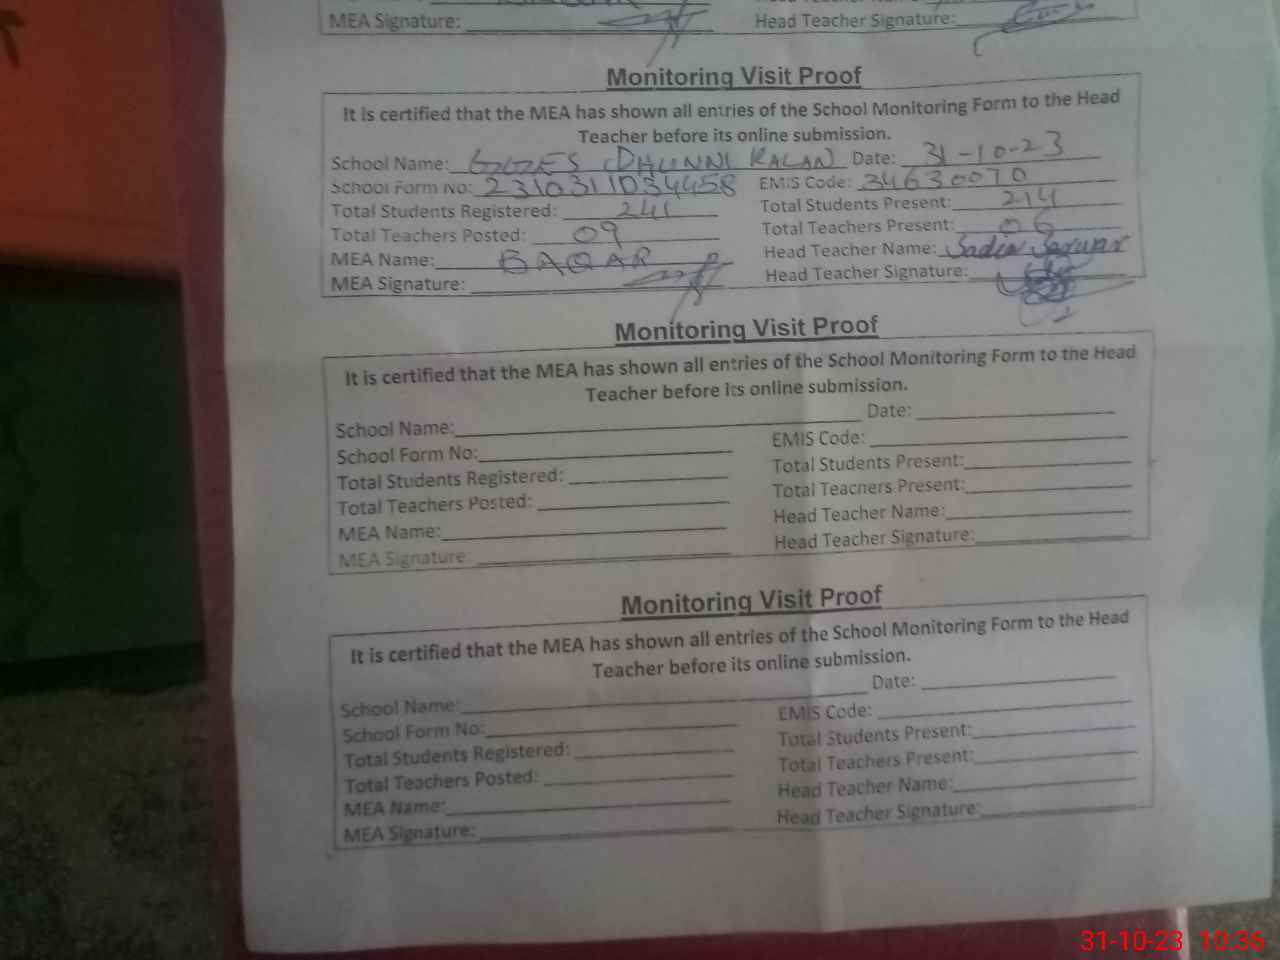 MEA Signature: Head Teacher Signature:
Monitoring Visit Proof
It is certified that the MEA has shown all entries of the School Monitoring Form to the Head
Teacher before its online submission.
School Name: DHUNNI KALAN Date: 31-10-23
School Form No: 2310311034458 EMIS Code: 34630070
Total Students Registered: 241 Total Students Present: 214
Total Teachers Posted: 09 Total Teachers Present: 06
MEA Name: BAQAR Head Teacher Name: Sadia Sarwar
MEA Signature: Head Teacher Signature:
Monitoring Visit Proof
It is certified that the MEA has shown all entries of the School Monitoring Form to the Head
Teacher before its online submission.
School Name: Date:
School Form No: EMIS Code:
Total Students Registered: Total Students Present:
Total Teachers Posted: Total Teachers Present:
MEA Name: Head Teacher Name:
MEA Signature: Head Teacher Signature:
Monitoring Visit Proof
It is certified that the MEA has shown all entries of the School Monitoring Form to the Head
Teacher before its online submission.
School Name: Date:
School Form No: EMIS Code:
Total Students Registered: Total Students Present:
Total Teachers Posted: Total Teachers Present:
MEA Name: Head Teacher Name:
MEA Signature: Head Teacher Signature:
31-10-23 10:36